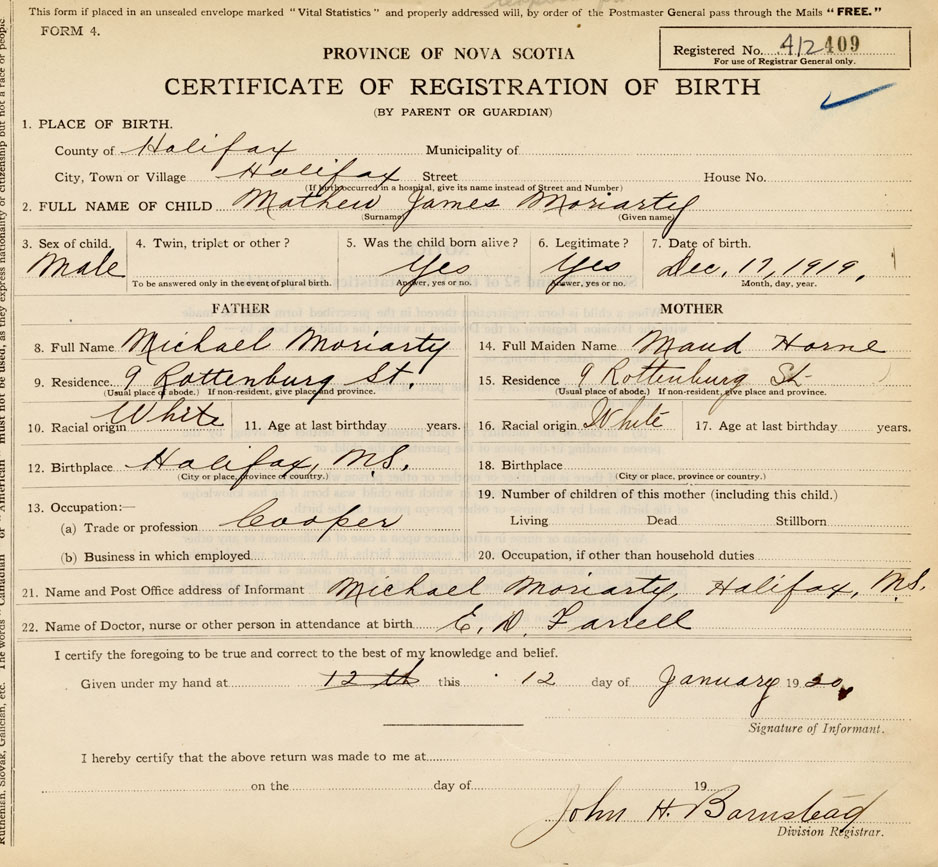 This form if placed in an unsealed envelope marked "Vital Statistics" and properly addressed will, by order of the Postmaster General pass through the Mails "FREE."
FORM 4.
Registered No. 412409
For use of Registrar General only.
PROVINCE OF NOVA SCOTIA
CERTIFICATE OF REGISTRATION OF BIRTH
(BY PARENT OR GUARDIAN)
1. PLACE OF BIRTH.
County of Halifax Municipality of
City, Town or Village Halifax Street House No.
(If birth occurred in a hospital, give its name instead of Street and Number)
2. FULL NAME OF CHILD Mathew James Moriarty
(Surname) (Given name)
3. Sex of child. 4. Twin, triplet or other? 5. Was the child born alive? 6. Legitimate? 7. Date of birth.
Male Yes Yes Dec. 17, 1919,
To be answered only in the event of plural birth. Answer, yes or no. Answer, yes or no. Month, day, year.
FATHER MOTHER
8. Full Name Michael Moriarty 14. Full Maiden Name Maud Horne
9. Residence. 9 Rottenburg St. 15. Residence 9 Rottenburg St
(Usual place of abode.) If non-resident, give place and province. (Usual place of abode.) If non-resident, give place and province.
10. Racial origin White 11. Age at last birthday years. 16. Racial origin White 17. Age at last birthday years.
12. Birthplace Halifax, N.S. 18. Birthplace
(City or place, province or country.) (City or place, province or country.)
13. Occupation:— 19. Number of children of this mother (including this child.)
(a) Trade or profession Cooper Living Dead Stillborn
(b) Business in which employed 20. Occupation, if other than household duties
21. Name and Post Office address of Informant Michael Moriarty, Halifax, N.S.
22. Name of Doctor, nurse or other person in attendance at birth E. D. Farrell
I certify the foregoing to be true and correct to the best of my knowledge and belief.
Given under my hand at 12th this 12 day of January 1920,
Signature of Informant.
I hereby certify that the above return was made to me at
on the day of 19
John H. Barnstead
Division Registrar.